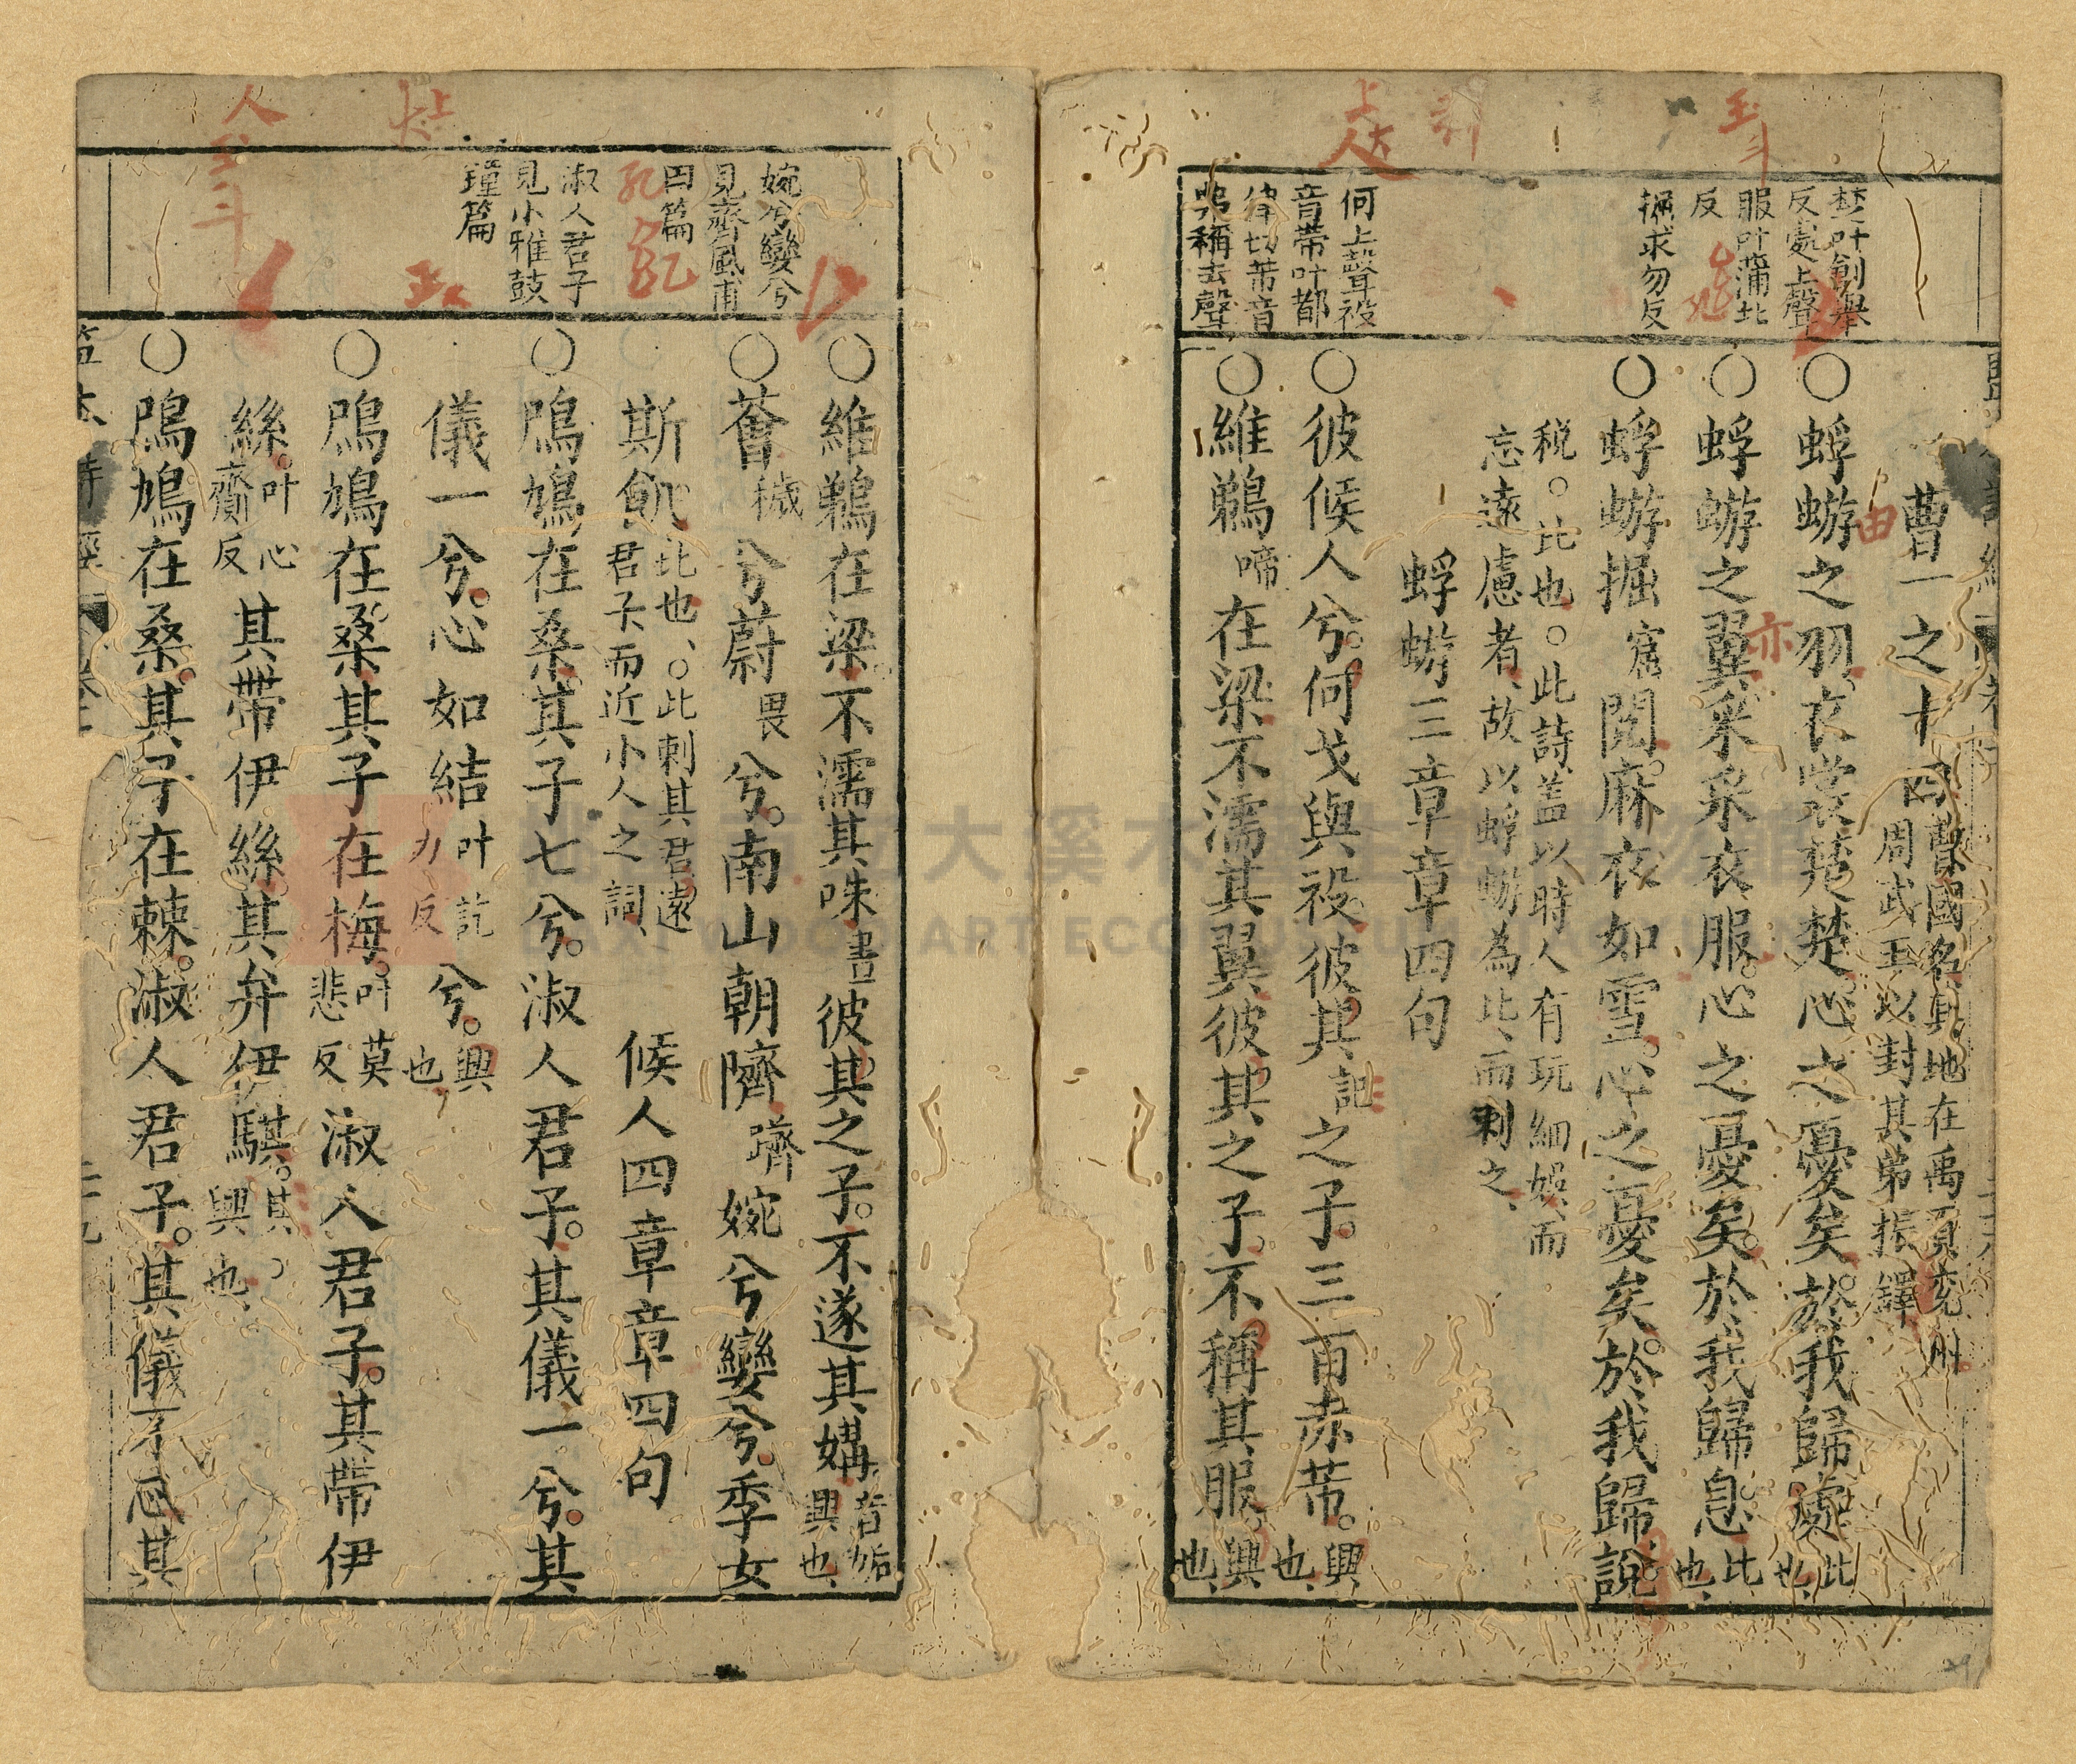 曹一之十四
曹國名其地在禹貢兗州
周武王以封其弟振鐸
楚叶創舉
反處上聲
服叶蒲北
反
掘求勿反
○蜉蝣之羽。衣裳楚楚。心之憂矣。於我歸處比也
○蜉蝣之翼采采衣服。心之憂矣。於我歸息。比也
○蜉蝣掘窟閱。麻衣如雪。心之憂矣。於我歸說。
稅。○比也。○此詩盖以時人有玩細娛、而
忘遠慮者、故以蜉蝣為比、而刺之、
蜉蝣三章章四句
何上聲祋
音帶叶都
律切芾音
弗稱去聲
○彼候人兮。何戈與祋。彼其記之子。三百赤芾。興也
○維鵜啼在梁不濡其翼彼其之子。不稱其服。興也
○維鵜在梁。不濡其咮晝彼其之子。不遂其媾。音姤興也
婉兮孌兮
見齊風甫
田篇
○薈穢兮蔚畏兮。南山朝隮嚌婉兮孌兮。季女
斯飢。比也、○此刺其君遠君子而近小人之詞、候人四章章四句
淑人君子
見小雅鼓
鐘篇
○鳲鳩在桑。其子七兮。淑人君子。其儀一兮。其
儀一兮。心如結叶訖力反兮。興也
○鳲鳩在桑其子在梅。叶莫悲反淑人君子。其帶伊
絲。叶心齎反其帶伊絲其弁伊騏。其。興也、
○鳲鳩在桑。其子在棘。淑人君子。其儀不忒其
人
上
大
上
大
人